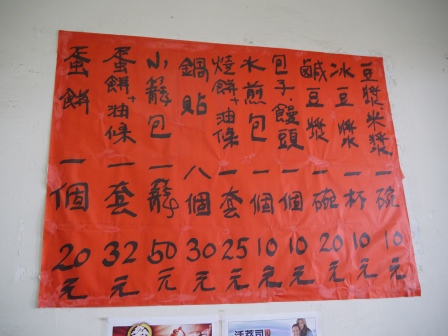 豆漿.米漿 一碗 10元
冰豆漿 一杯 10元
鹹豆漿 一碗 20元
包子.饅頭 一個 10元
水煎包 一個 10元
燒餅+油條 一套 25元
鍋貼 八個 30元
小籠包 一籠 50元
蛋餅+油條 一套 32元
蛋餅 一個 20元